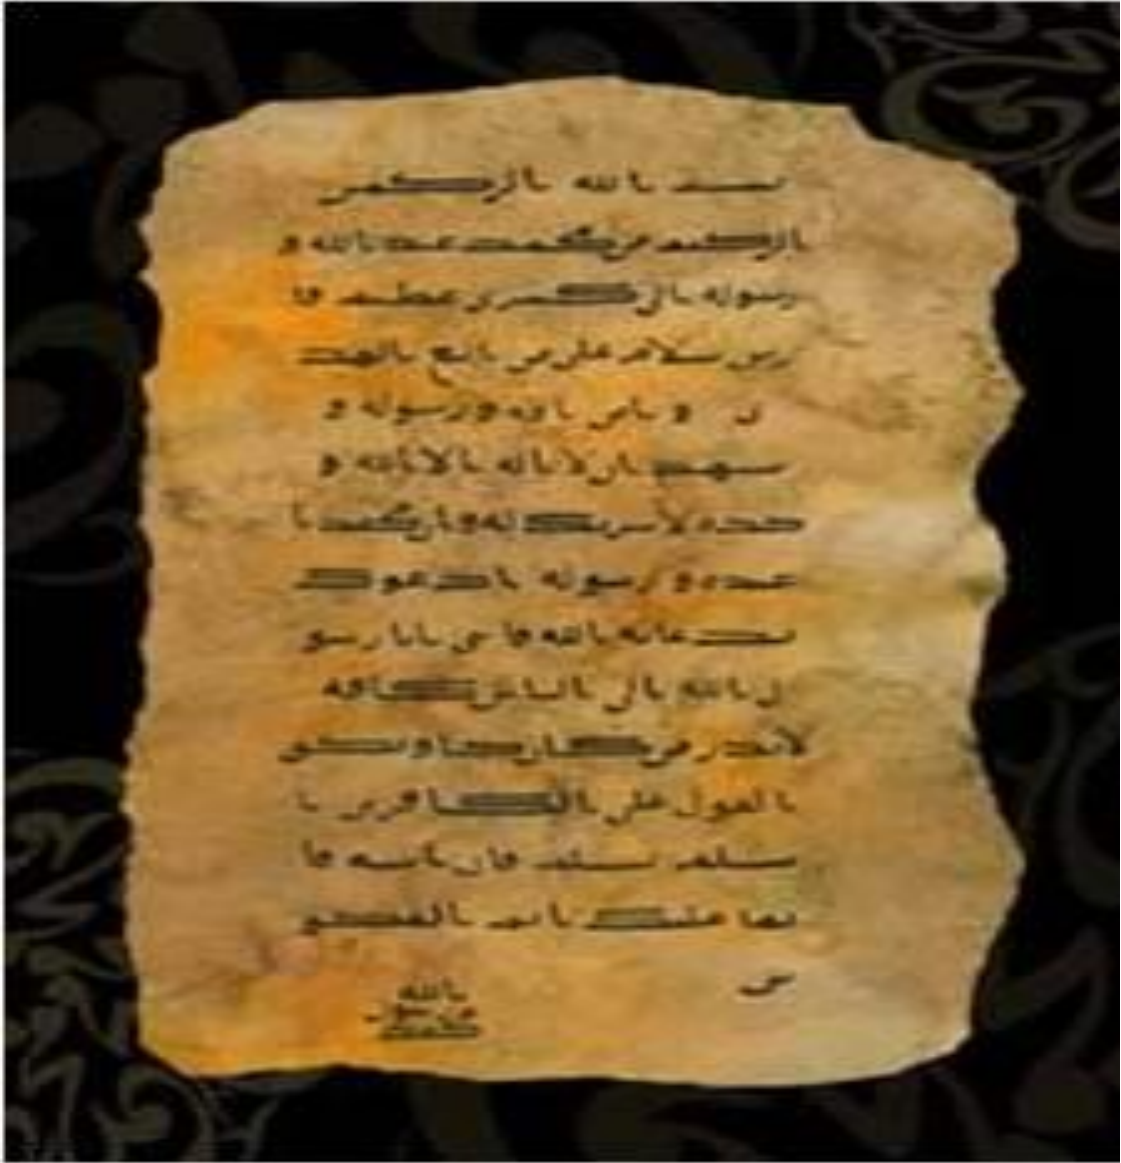 بسم الله الرحمن
الرحيم من محمد عبد الله و
رسوله الى كسرى عظيم فا
رس سلام على من اتبع الهد
ى و امن بالله ورسوله و
شهد ان لا اله الا الله و
حده لا شريك له وان محمدا
عبده و رسوله ادعوك
بدعاية الله فاني انا رسو
ل الله الى الناس كافة
لانذر من كان حيا ويحق
القول على الكافرين ا
سلم تسلم فان ابيت فا
نما عليك اثم المجو
س
الله
رسول
محمد